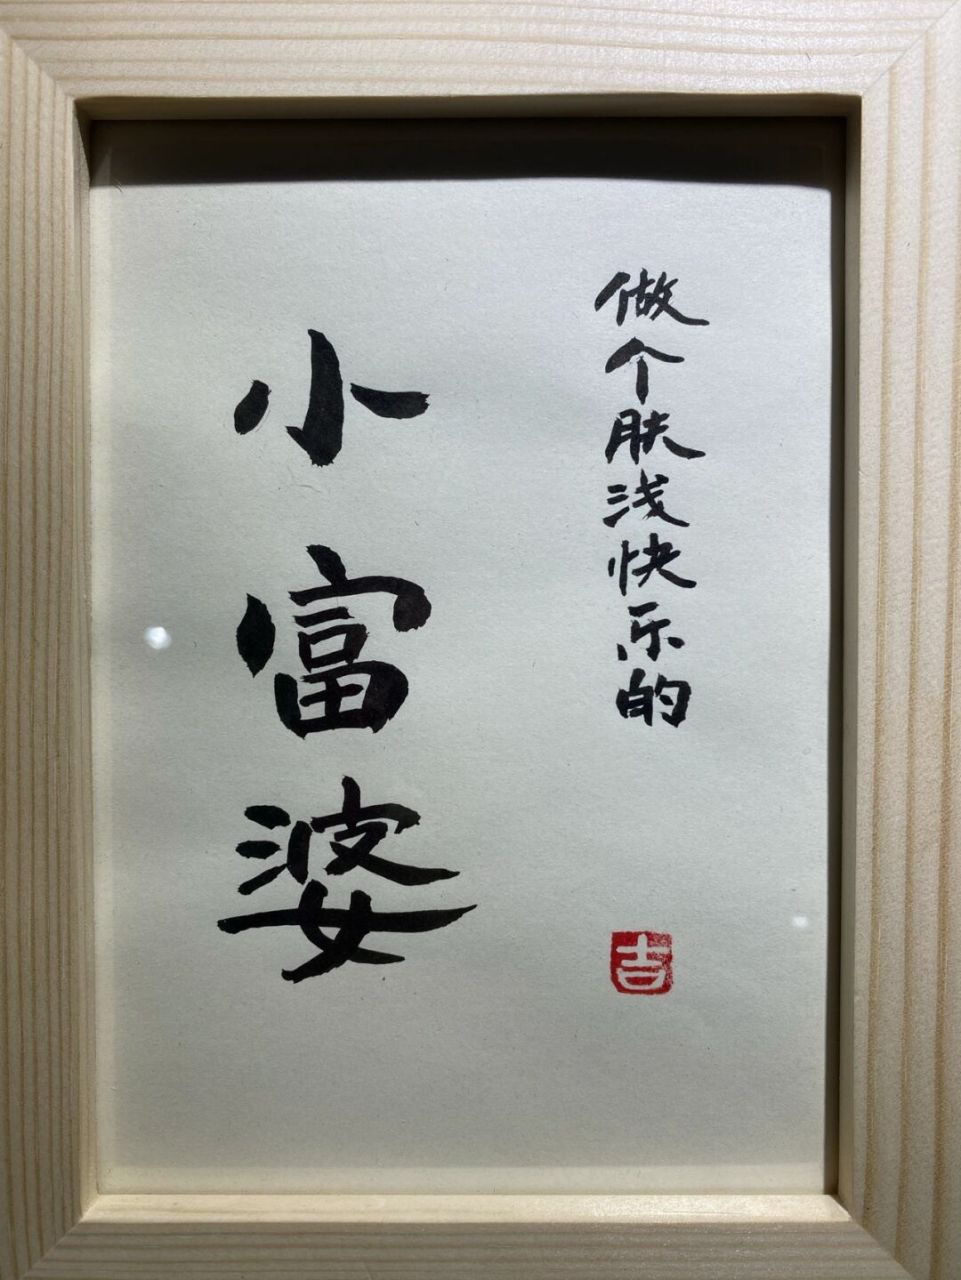 做个肤浅快乐的
小富婆
吉